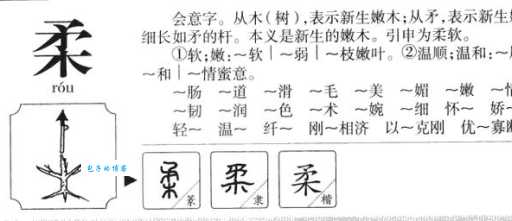 柔
róu
会意字。从木(树),表示新生嫩木;从矛,表示新生
细长如矛的杆。本义是新生的嫩木。引申为柔软。
①软;嫩:~软｜~弱｜~枝嫩叶。②温顺;温和:~
~和｜~情蜜意。
~肠 ~道 ~滑 ~毛 ~美 ~媚 ~嫩 ~情
~韧 ~润 ~色 ~术 ~婉 ~细 怀~ 娇~
轻~ 温~ 纤~ 刚~相济 以~克刚 优~寡断
包子的博客
柔 篆
柔 隶
柔 楷